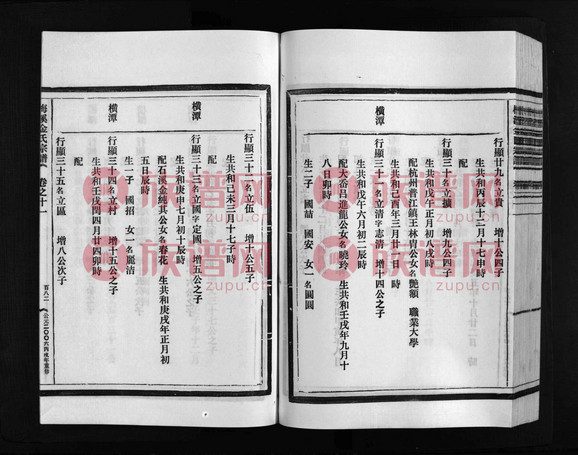 行顯廿九名立貴 增十公四子
生共和丙辰十二月十七申時
行顯三十名立擴 增九公四子
生共和戊午正月初八戌時
配杭州普江鎮王林胄公女名艷額 職業大學
生共和己酉年三月廿一 時
橫潭
行顯三十一名立清字志清 增十四公之子
生共和戊午六月初二辰時
配大畓呂進龍公女名曉玲 生共和壬戌年九月十
八日卯時
生二子 國喆 國安 女一名圓圓
行顯三十二名立伍 增十公五子
生共和己未三月十七子時
配
橫潭
行顯三十三名立國字定國 增五公之子
生共和庚申七月初十辰時
配石溪金純其公女名春花 生共和庚戌年正月初
五日辰時
生一子 國招 女一名麗洁
橫潭
行顯三十四名立村 增十五公之子
生共和壬戌閏四月廿四卯時
配
行顯三十五名立區 增八公次子
梅溪金氏宗譜 卷之十一
百八二
公元二〇〇六丙戌年重修
族谱网
zupu.cn
族谱网
zupu.cn
族谱网
zupu.cn
族谱网
zupu.cn